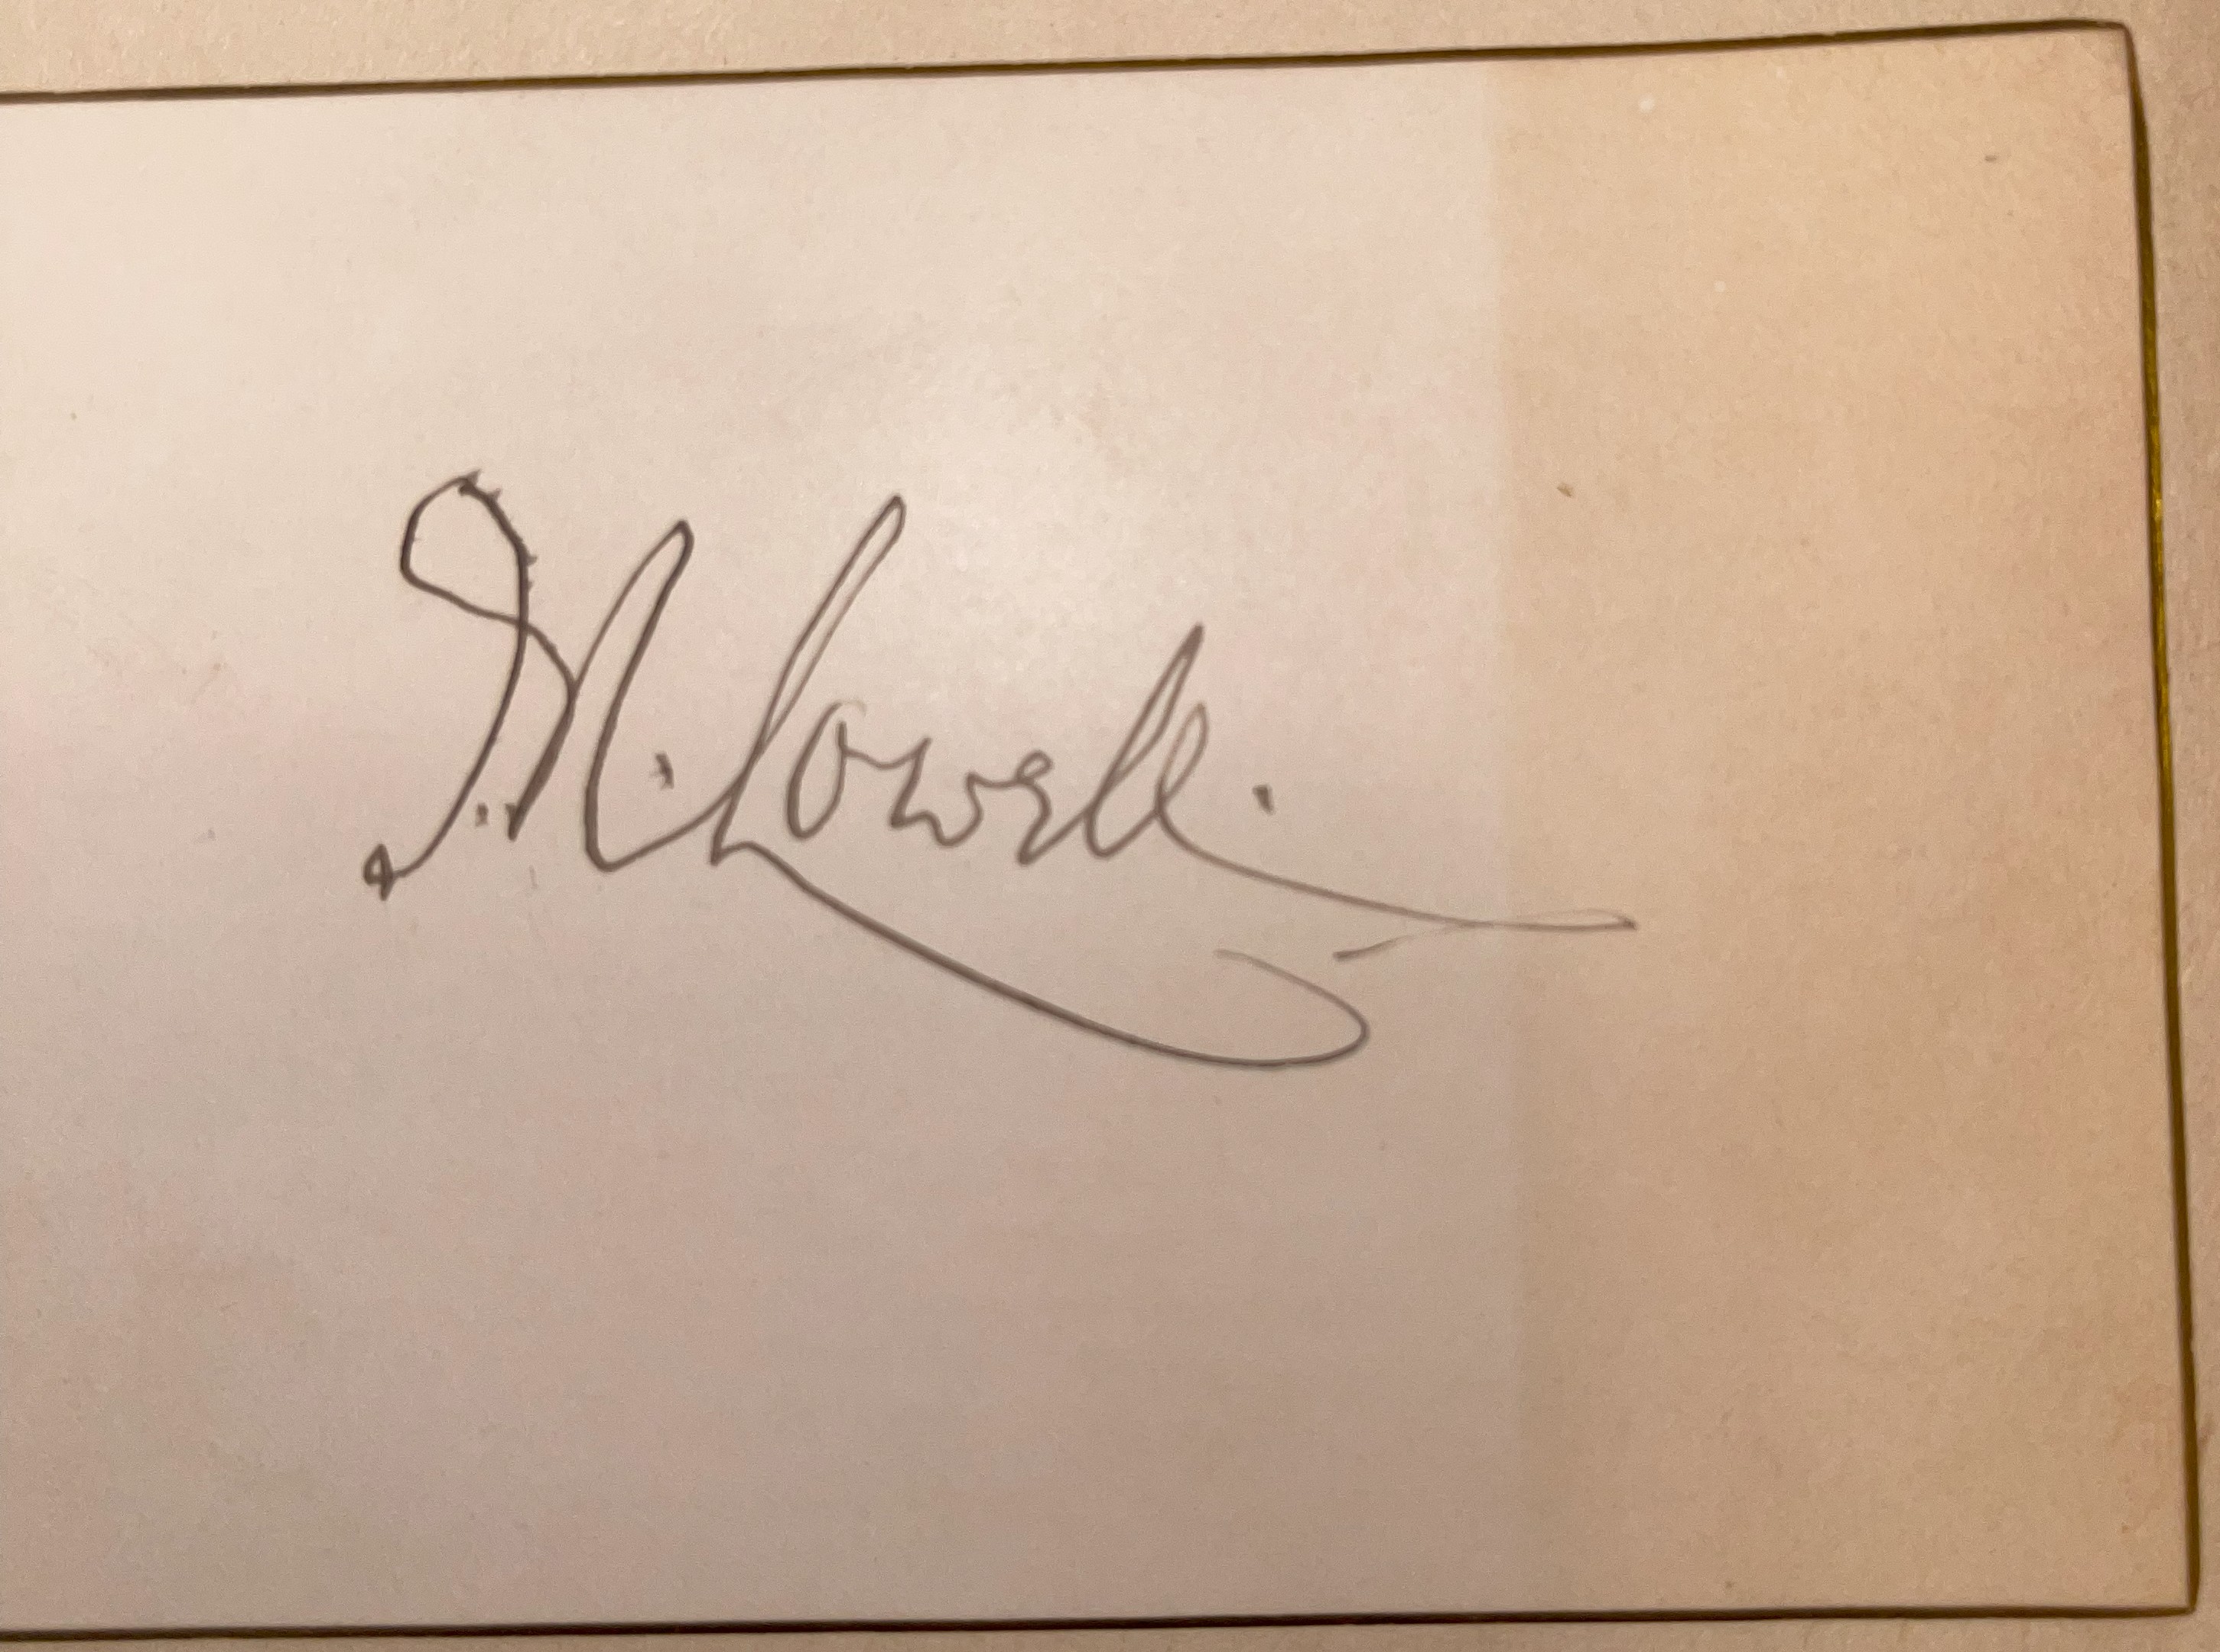 M. Lowell.